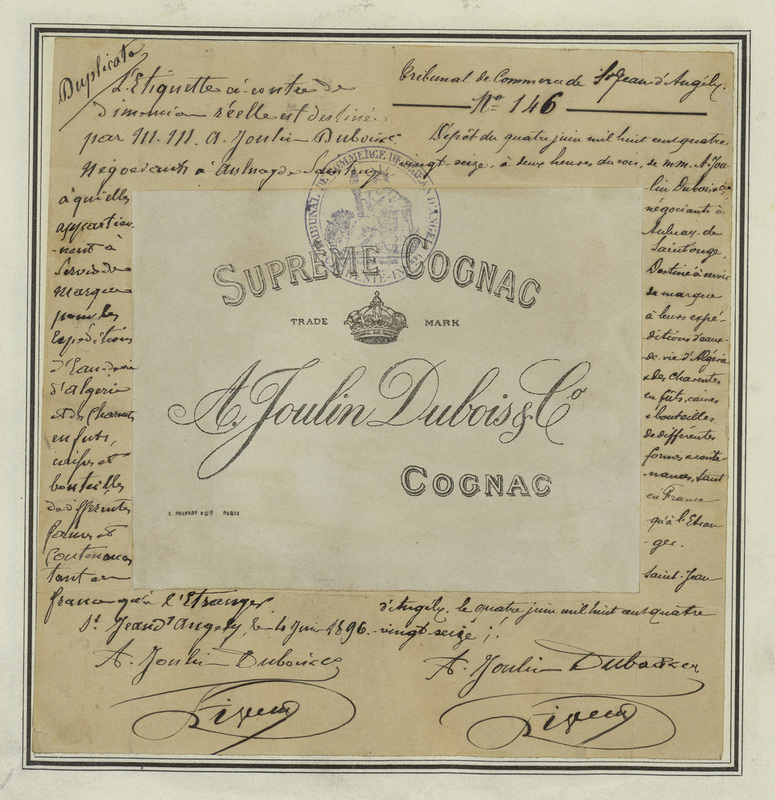 Duplicata
L'Etiquette ci-contre de
dimension réelle est destinée
par M.M. A. Joulin Dubois &Cie
Négociants à Aulnay de Saintonge
à qui elle
appartien-
-nent à
Servir de
Marque
pour les
Expéditions
d'Eau-de-vie
d'Algérie
et des Charentes
en futs,
caisses et
bouteilles
de différentes
formes et
Contenances
tant en
France qu'à l'Etranger.
St Jean d'Angély, le 4 Juin 1896.
A. Joulin Dubois &Co
Tribunal de Commerce de St Jean d'Angély.
No 146
Dépôt du quatre juin mil huit cent quatre
vingt-seize, à deux heures du soir, de mm. A. Jou-
lin Dubois &Cie
négociants à
Aulnay-de
Saintonge.
Destiné à servir
de marque
à leurs expé-
ditions d'eaux-
-de-vie d'Algérie
& des Charentes
en fûts, caisses
& bouteilles
de différentes
formes & conte-
nances, tant
en France
qu'à l'Etran-
ger.
Saint-Jean
d'Angély, le quatre juin mil huit cent quatre
-vingt-seize ;.
A. Joulin Dubois &Co
TRIBUNAL DE COMMERCE DE ST JEAN D'ANGELY
SUPREME COGNAC
TRADE MARK
A. Joulin Dubois & Co
COGNAC
PARIS